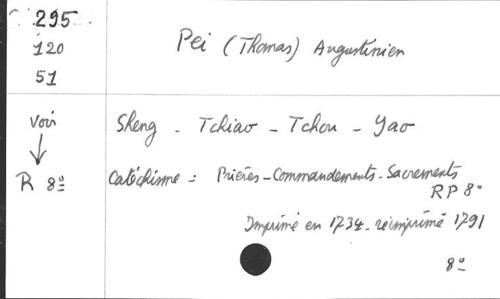 295
120
51
Pei (Thomas) Augustinien
Voir
R 8º
Sheng - Tchiao - Tchou - Yao
Catéchisme : Prières - Commandements - Sacrements
RP 8º
Imprimé en 1734 - réimprimé 1791
8º